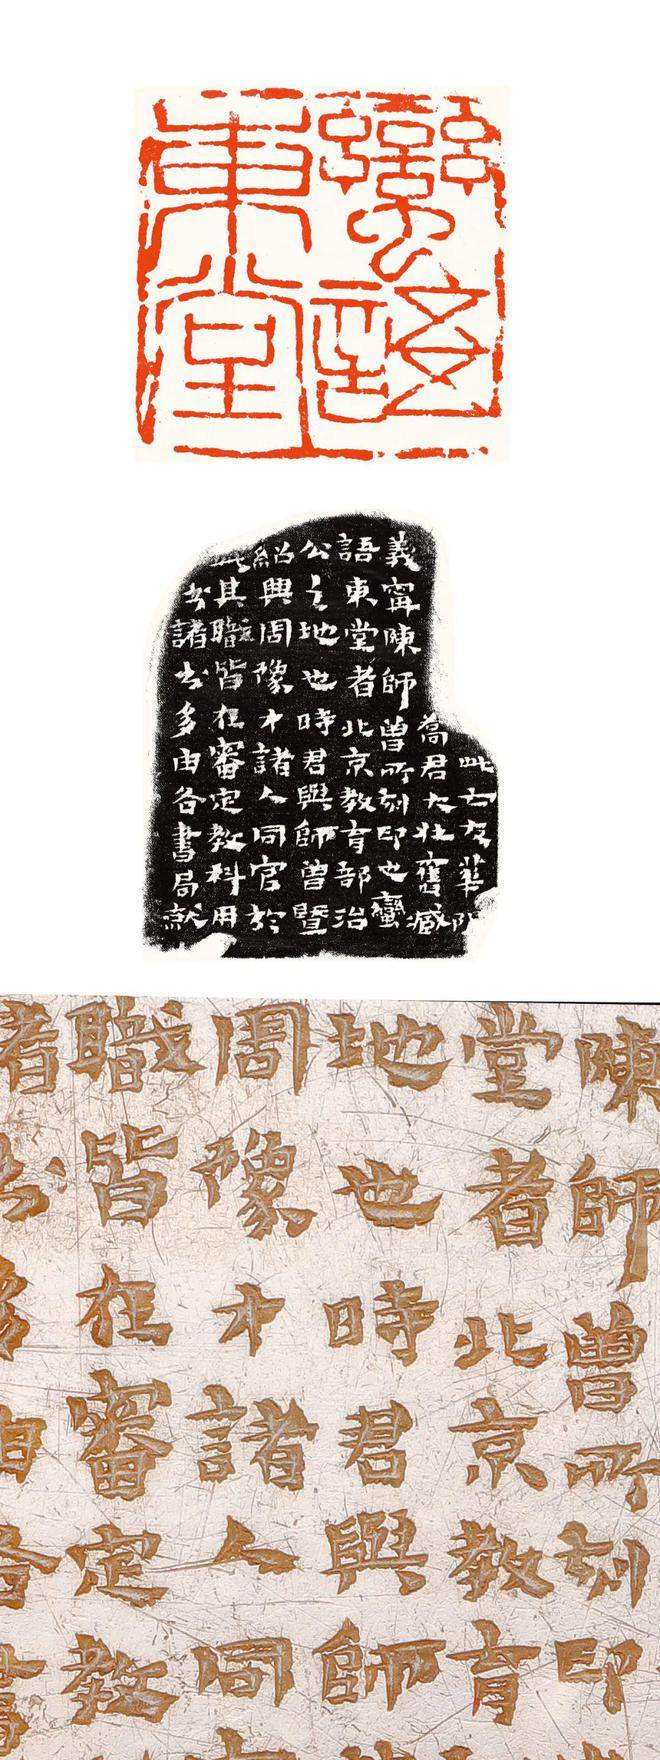 蠻語
東堂
此亡友華陽
喬君大壯舊臧
義甯陳師曾所刻印也蠻
語東堂者北京教育部治
公之地也時君與師曾暨
紹興周豫才諸人同官於
此其職皆在審定教科用
书諸书多由各書局就
陳師曾所刻印
堂者北京教育
地也時君與師
周豫才諸人同
職皆在審定教
者书多由各書